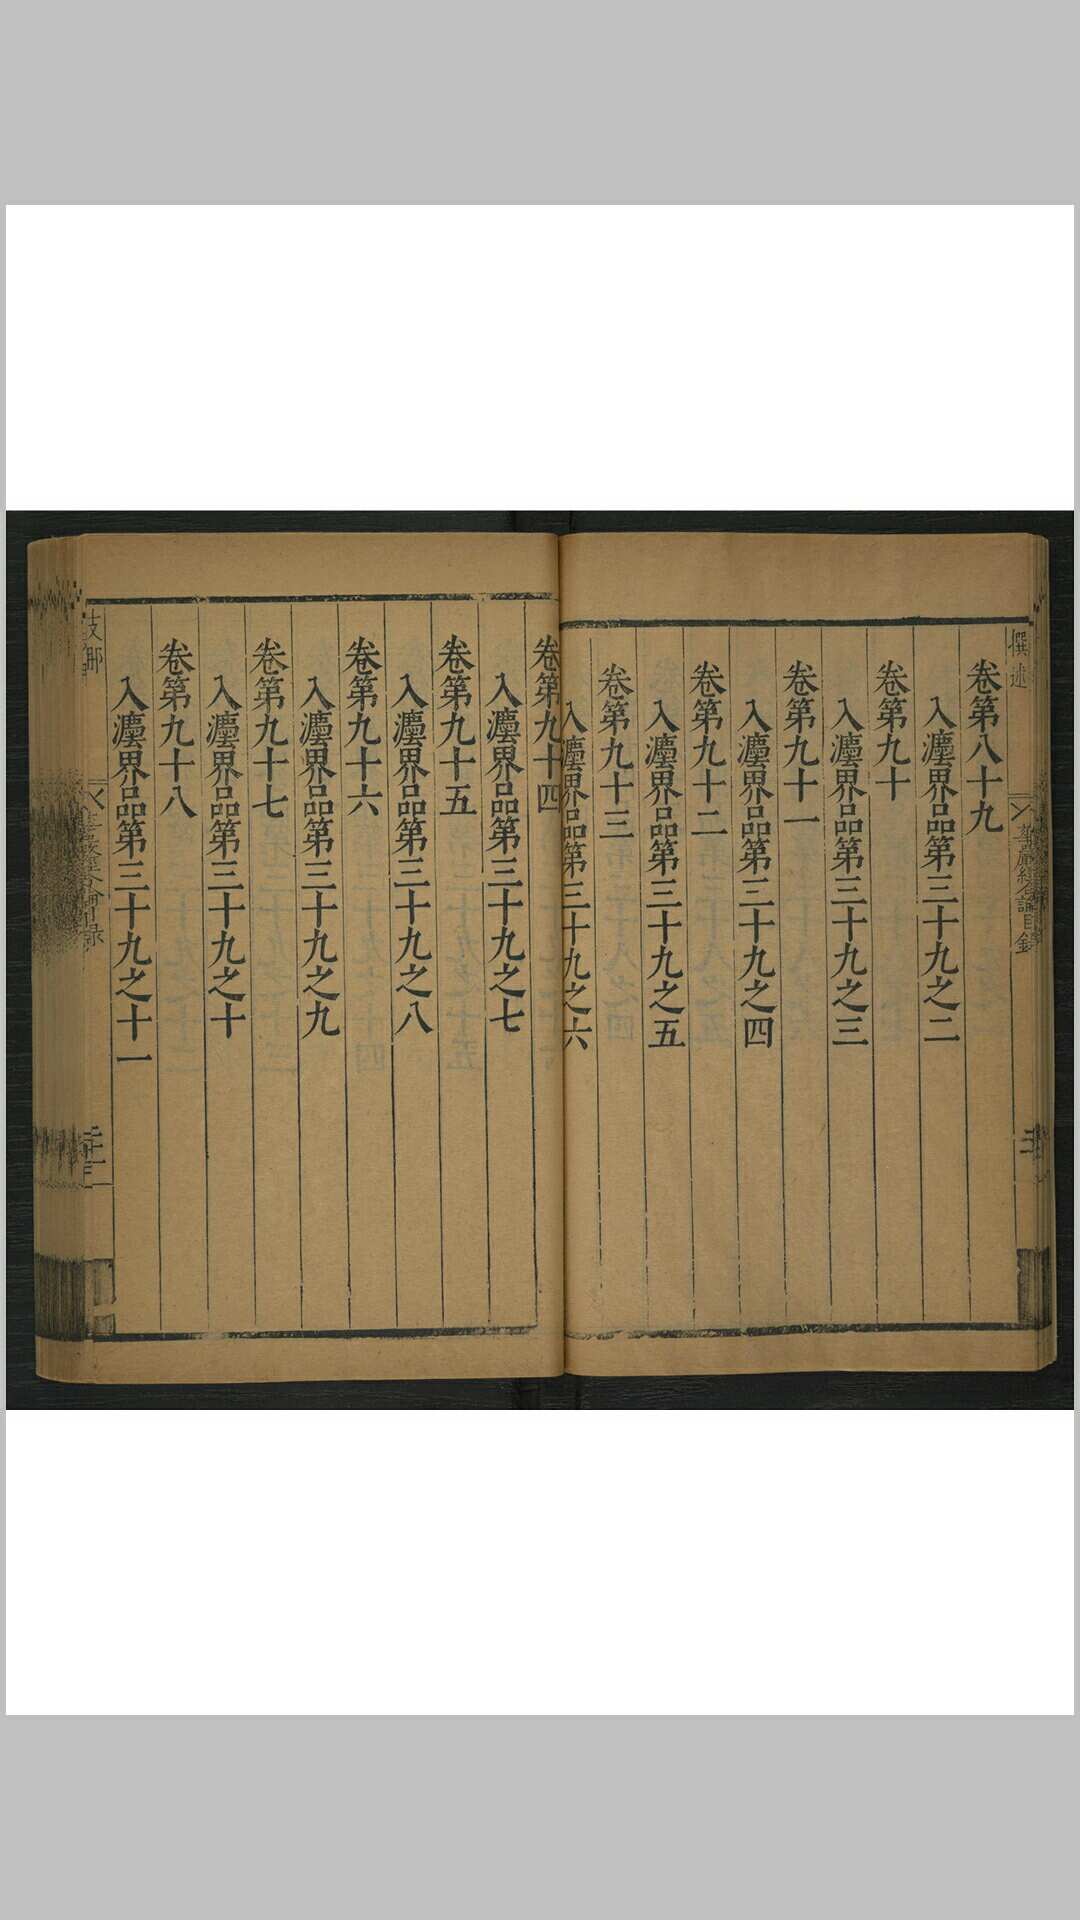 撰述
華嚴經合論目錄
卷第八十九
入灋界品第三十九之二
卷第九十
入灋界品第三十九之三
卷第九十一
入灋界品第三十九之四
卷第九十二
入灋界品第三十九之五
卷第九十三
入灋界品第三十九之六
卷第九十四
入灋界品第三十九之七
卷第九十五
入灋界品第三十九之八
卷第九十六
入灋界品第三十九之九
卷第九十七
入灋界品第三十九之十
卷第九十八
入灋界品第三十九之十一
支那